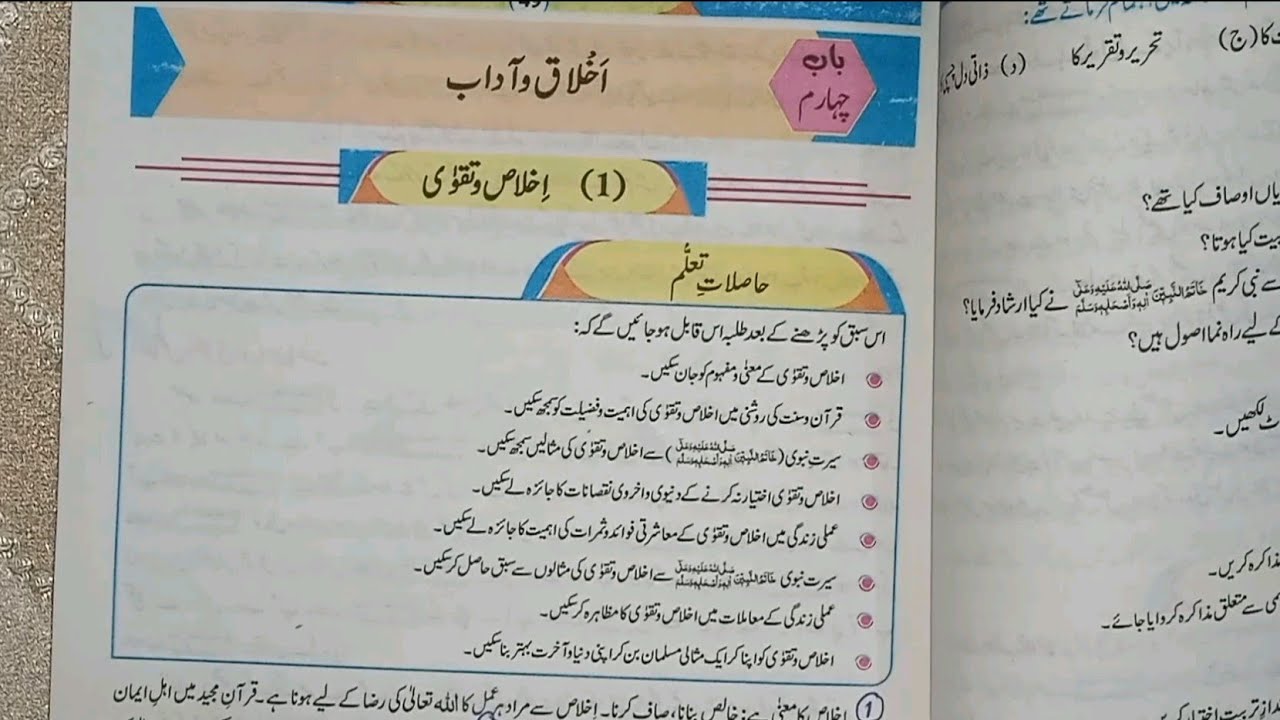 باب
چہارم
اَخْلاق و آداب
(1) اِخلاص و تقوٰی
حاصلاتِ تعلُّم
اس سبق کو پڑھنے کے بعد طلبہ اس قابل ہو جائیں گے کہ:
اخلاص و تقوٰی کے معنٰی و مفہوم کو جان سکیں۔
قرآن و سنت کی روشنی میں اخلاص و تقوٰی کی اہمیت و فضیلت کو سمجھ سکیں۔
سیرتِ نبوی (خَاتَمُ النَّبِیّٖنَ صَلَّی اللہُ عَلَیْہِ وَعَلٰی اٰلِہٖ وَاَصْحَابِہٖ وَسَلَّمَ) سے اخلاص و تقوٰی کی مثالیں سمجھ سکیں۔
اخلاص و تقوٰی اختیار نہ کرنے کے دنیوی و اخروی نقصانات کا جائزہ لے سکیں۔
عملی زندگی میں اخلاص و تقوٰی کے معاشرتی فوائد و ثمرات کی اہمیت کا جائزہ لے سکیں۔
سیرت نبوی خَاتَمُ النَّبِیّٖنَ صَلَّی اللہُ عَلَیْہِ وَعَلٰی اٰلِہٖ وَاَصْحَابِہٖ وَسَلَّمَ سے اخلاص و تقوٰی کی مثالوں سے سبق حاصل کر سکیں۔
عملی زندگی کے معاملات میں اخلاص و تقوٰی کا مظاہرہ کر سکیں۔
اخلاص و تقوٰی کو اپنا کر ایک مثالی مسلمان بن کر اپنی دنیا و آخرت بہتر بنا سکیں۔
1 اخلاص کا معنٰی ہے: خالص بنانا، صاف کرنا۔ اِخلاص سے مراد ہر عمل کا اللہ تعالٰی کی رضا کے لیے ہونا ہے۔ قرآنِ مجید میں اہلِ ایمان
(ج) تحریر و تقریر کا (د) ذاتی دل
اوصاف کیا تھے؟
کیا ہوتا؟
سے نبی کریم خَاتَمُ النَّبِیّٖنَ صَلَّی اللہُ عَلَیْہِ وَعَلٰی اٰلِہٖ وَاَصْحَابِہٖ وَسَلَّمَ نے کیا ارشاد فرمایا؟
کے لیے راہ نما اصول ہیں؟
لکھیں۔
کریں۔
سے متعلق مذاکرہ کروایا جائے۔